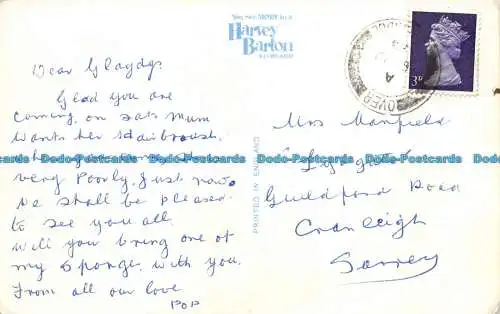 You see MORE in a
Harvey
Barton
Dear Gladys
Glad you are
coming, on Sats Mum
wants her Hairbrush.
very Poorly. Just now.
We shall be pleased
to see you all.
Will you bring one of
my Sponge. with you.
From all our love
POP
PRINTED IN ENGLAND
DOVER
A
3D
Mrs Manfield
Guildford Road
Cranleigh
Surrey
Dodo-Postcards Dodo-Postcards Dodo-Postcards Dodo-Postcards Dodo-Postcards